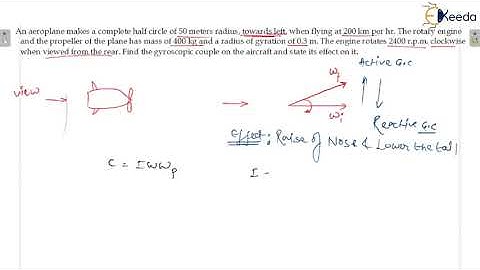 Ekeeda
An aeroplane makes a complete half circle of 50 meters radius, towards left, when flying at 200 km per hr. The rotary engine
and the propeller of the plane has mass of 400 kg and a radius of gyration of 0.3 m. The engine rotates 2400 r.p.m. clockwise
when viewed from the rear. Find the gyroscopic couple on the aircraft and state its effect on it.
Active G.C
view
Reactive G.C
Effect: Raise of Nose & Lower the tail
C = I ω ωp
I -